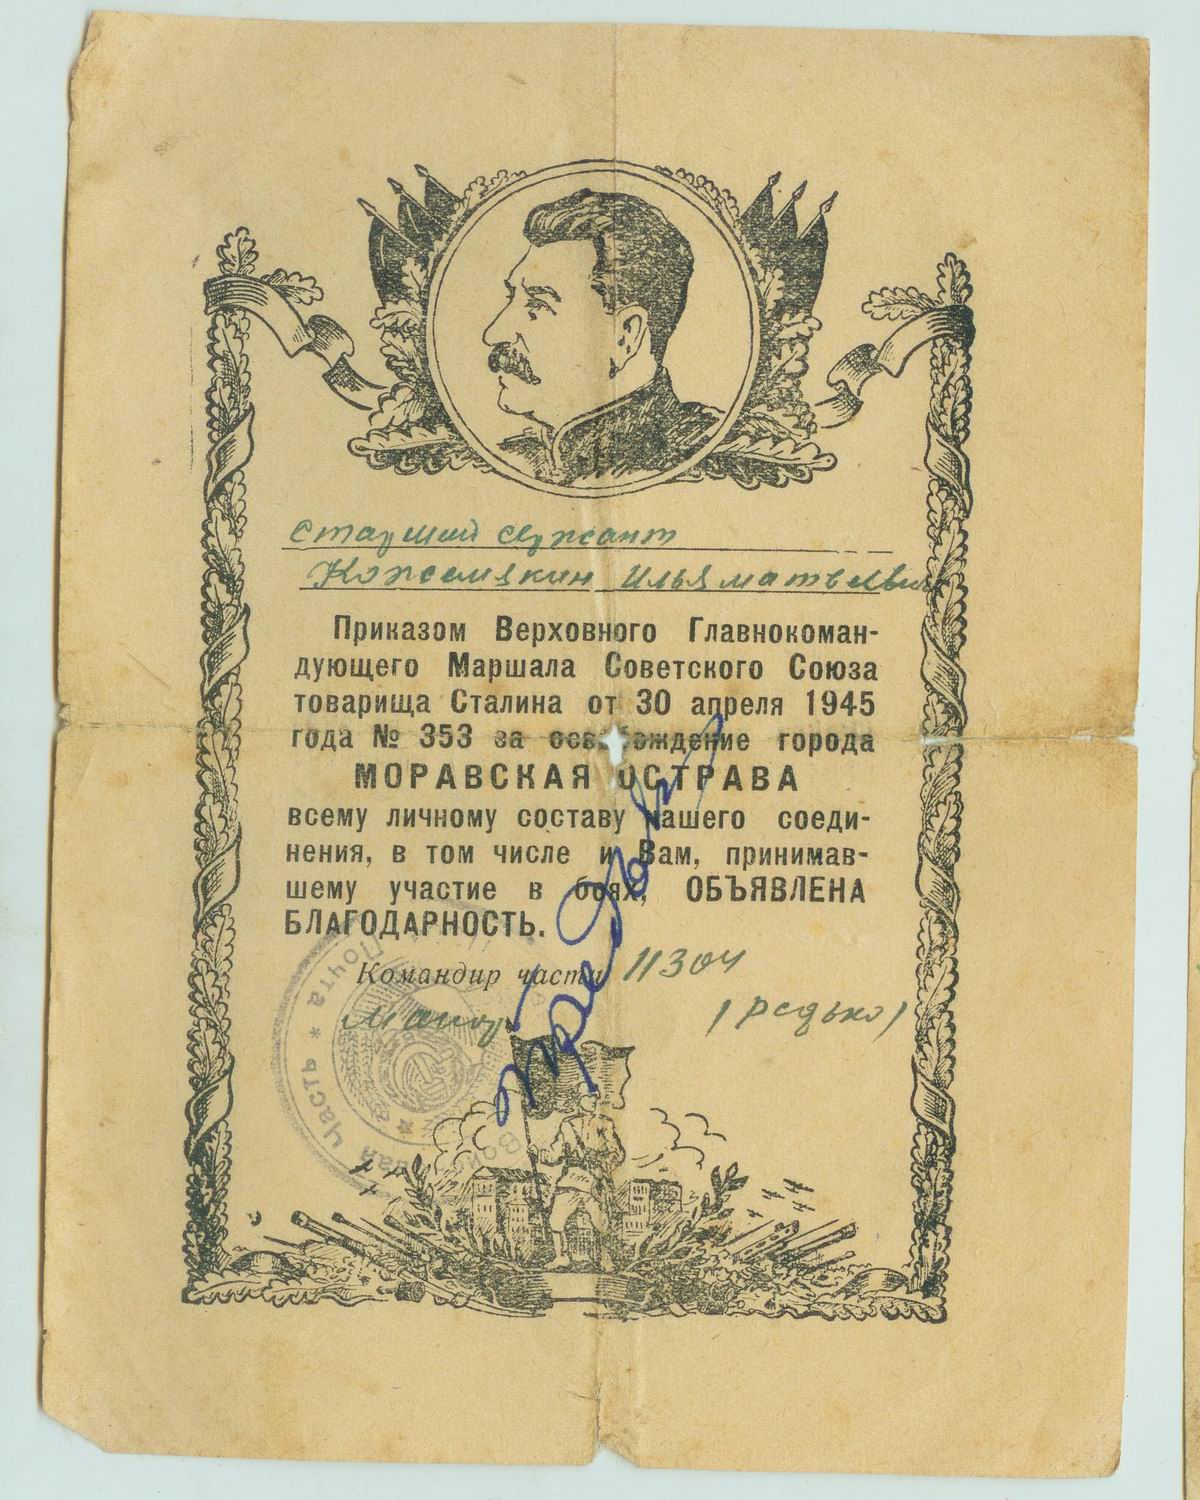 Старший сержант
Кожемякин Илья Матвеевич
Приказом Верховного Главнокоман-
дующего Маршала Советского Союза
товарища Сталина от 30 апреля 1945
года № 353 за освобождение города
МОРАВСКАЯ ОСТРАВА
всему личному составу нашего соеди-
нения, в том числе и Вам, принимав-
шему участие в боях, ОБЪЯВЛЕНА
БЛАГОДАРНОСТЬ.
Командир части 11304
Майор (Редько)
Часть * Почта